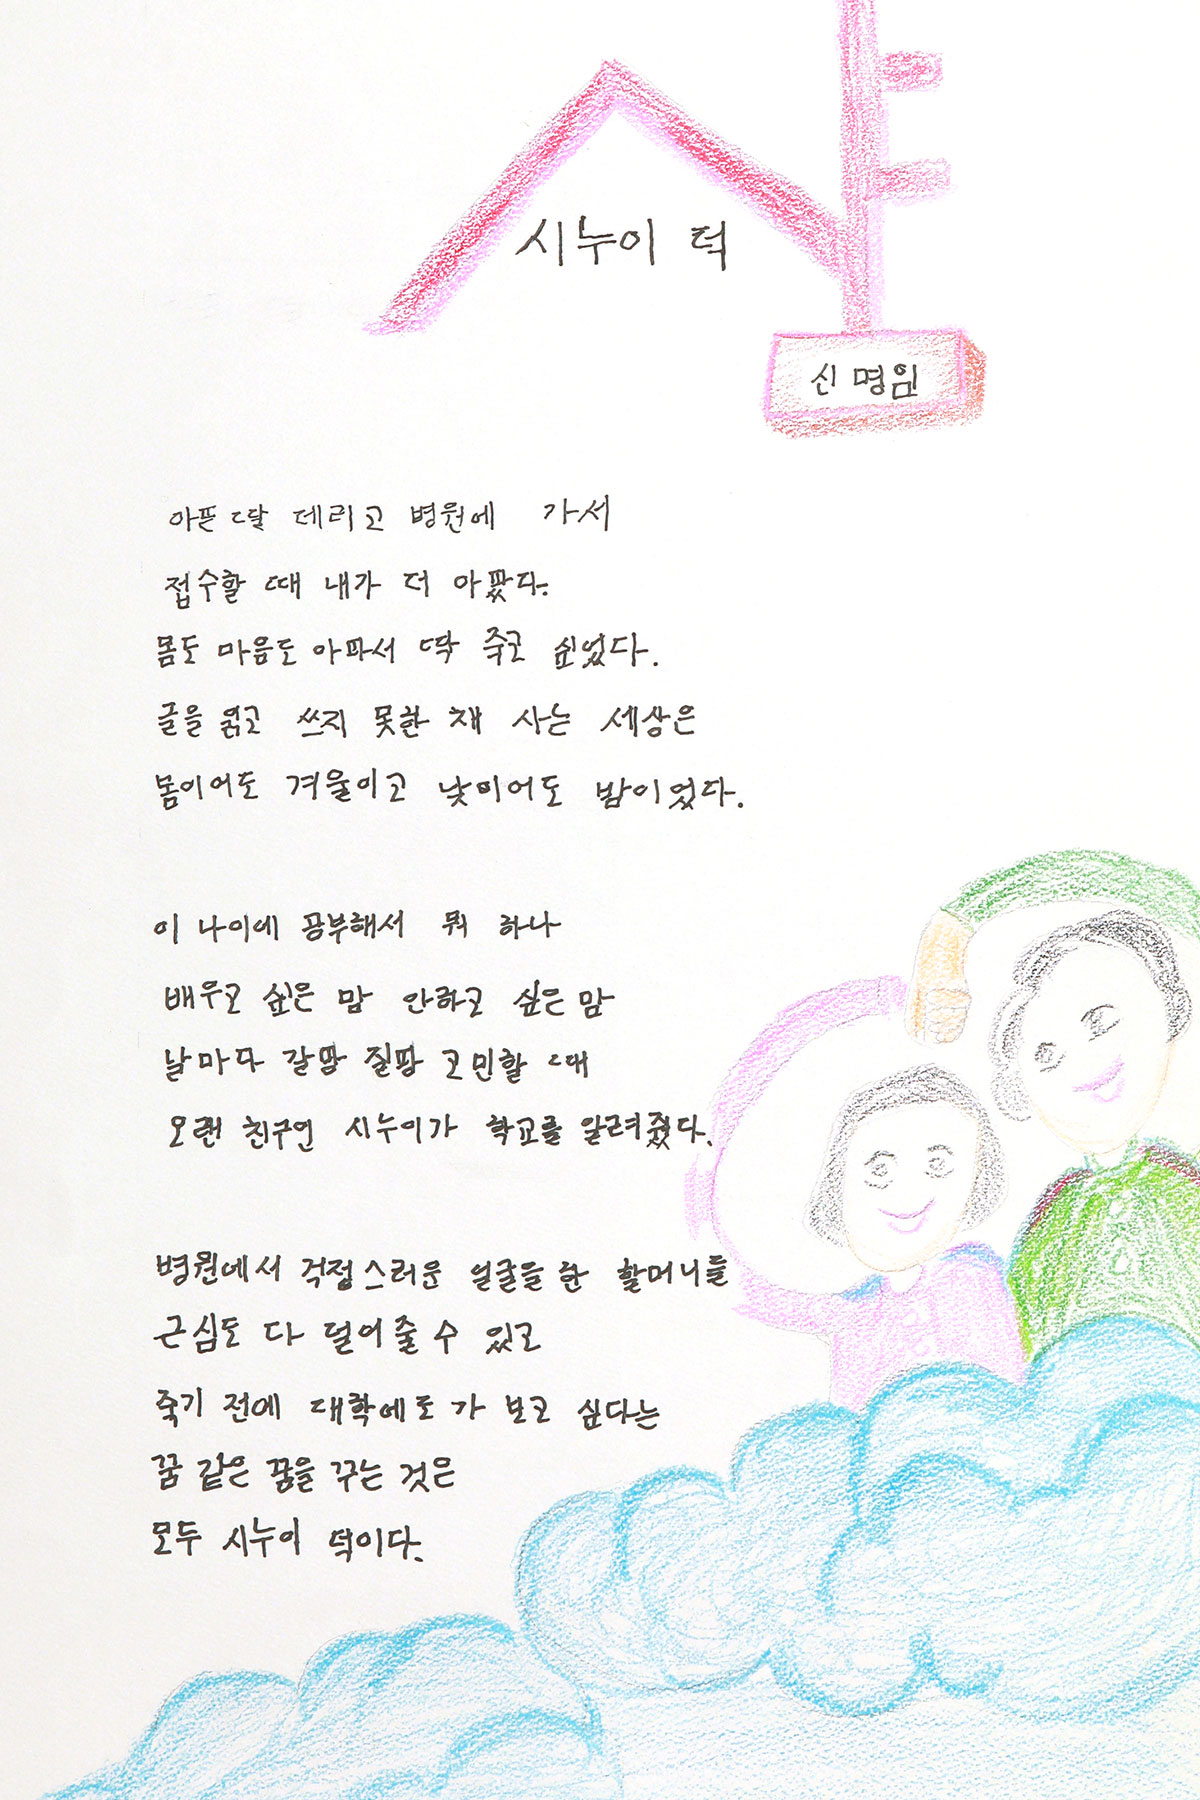 시누이 덕
신명임
아픈 딸 데리고 병원에 가서
접수할 때 내가 더 아팠다.
몸도 마음도 아파서 딱 죽고 싶었다.
글을 읽고 쓰지 못한 채 사는 세상은
봄이어도 겨울이고 낮이어도 밤이었다.
이 나이에 공부해서 뭐 하나
배우고 싶은 맘 안하고 싶은 맘
날마다 갈팡 질팡 고민할 때
오랜 친구인 시누이가 학교를 알려줬다.
병원에서 걱정스러운 얼굴을 한 할머니들
근심도 다 덜어줄 수 있고
죽기 전에 대학에도 가 보고 싶다는
꿈 같은 꿈을 꾸는 것은
모두 시누이 덕이다.